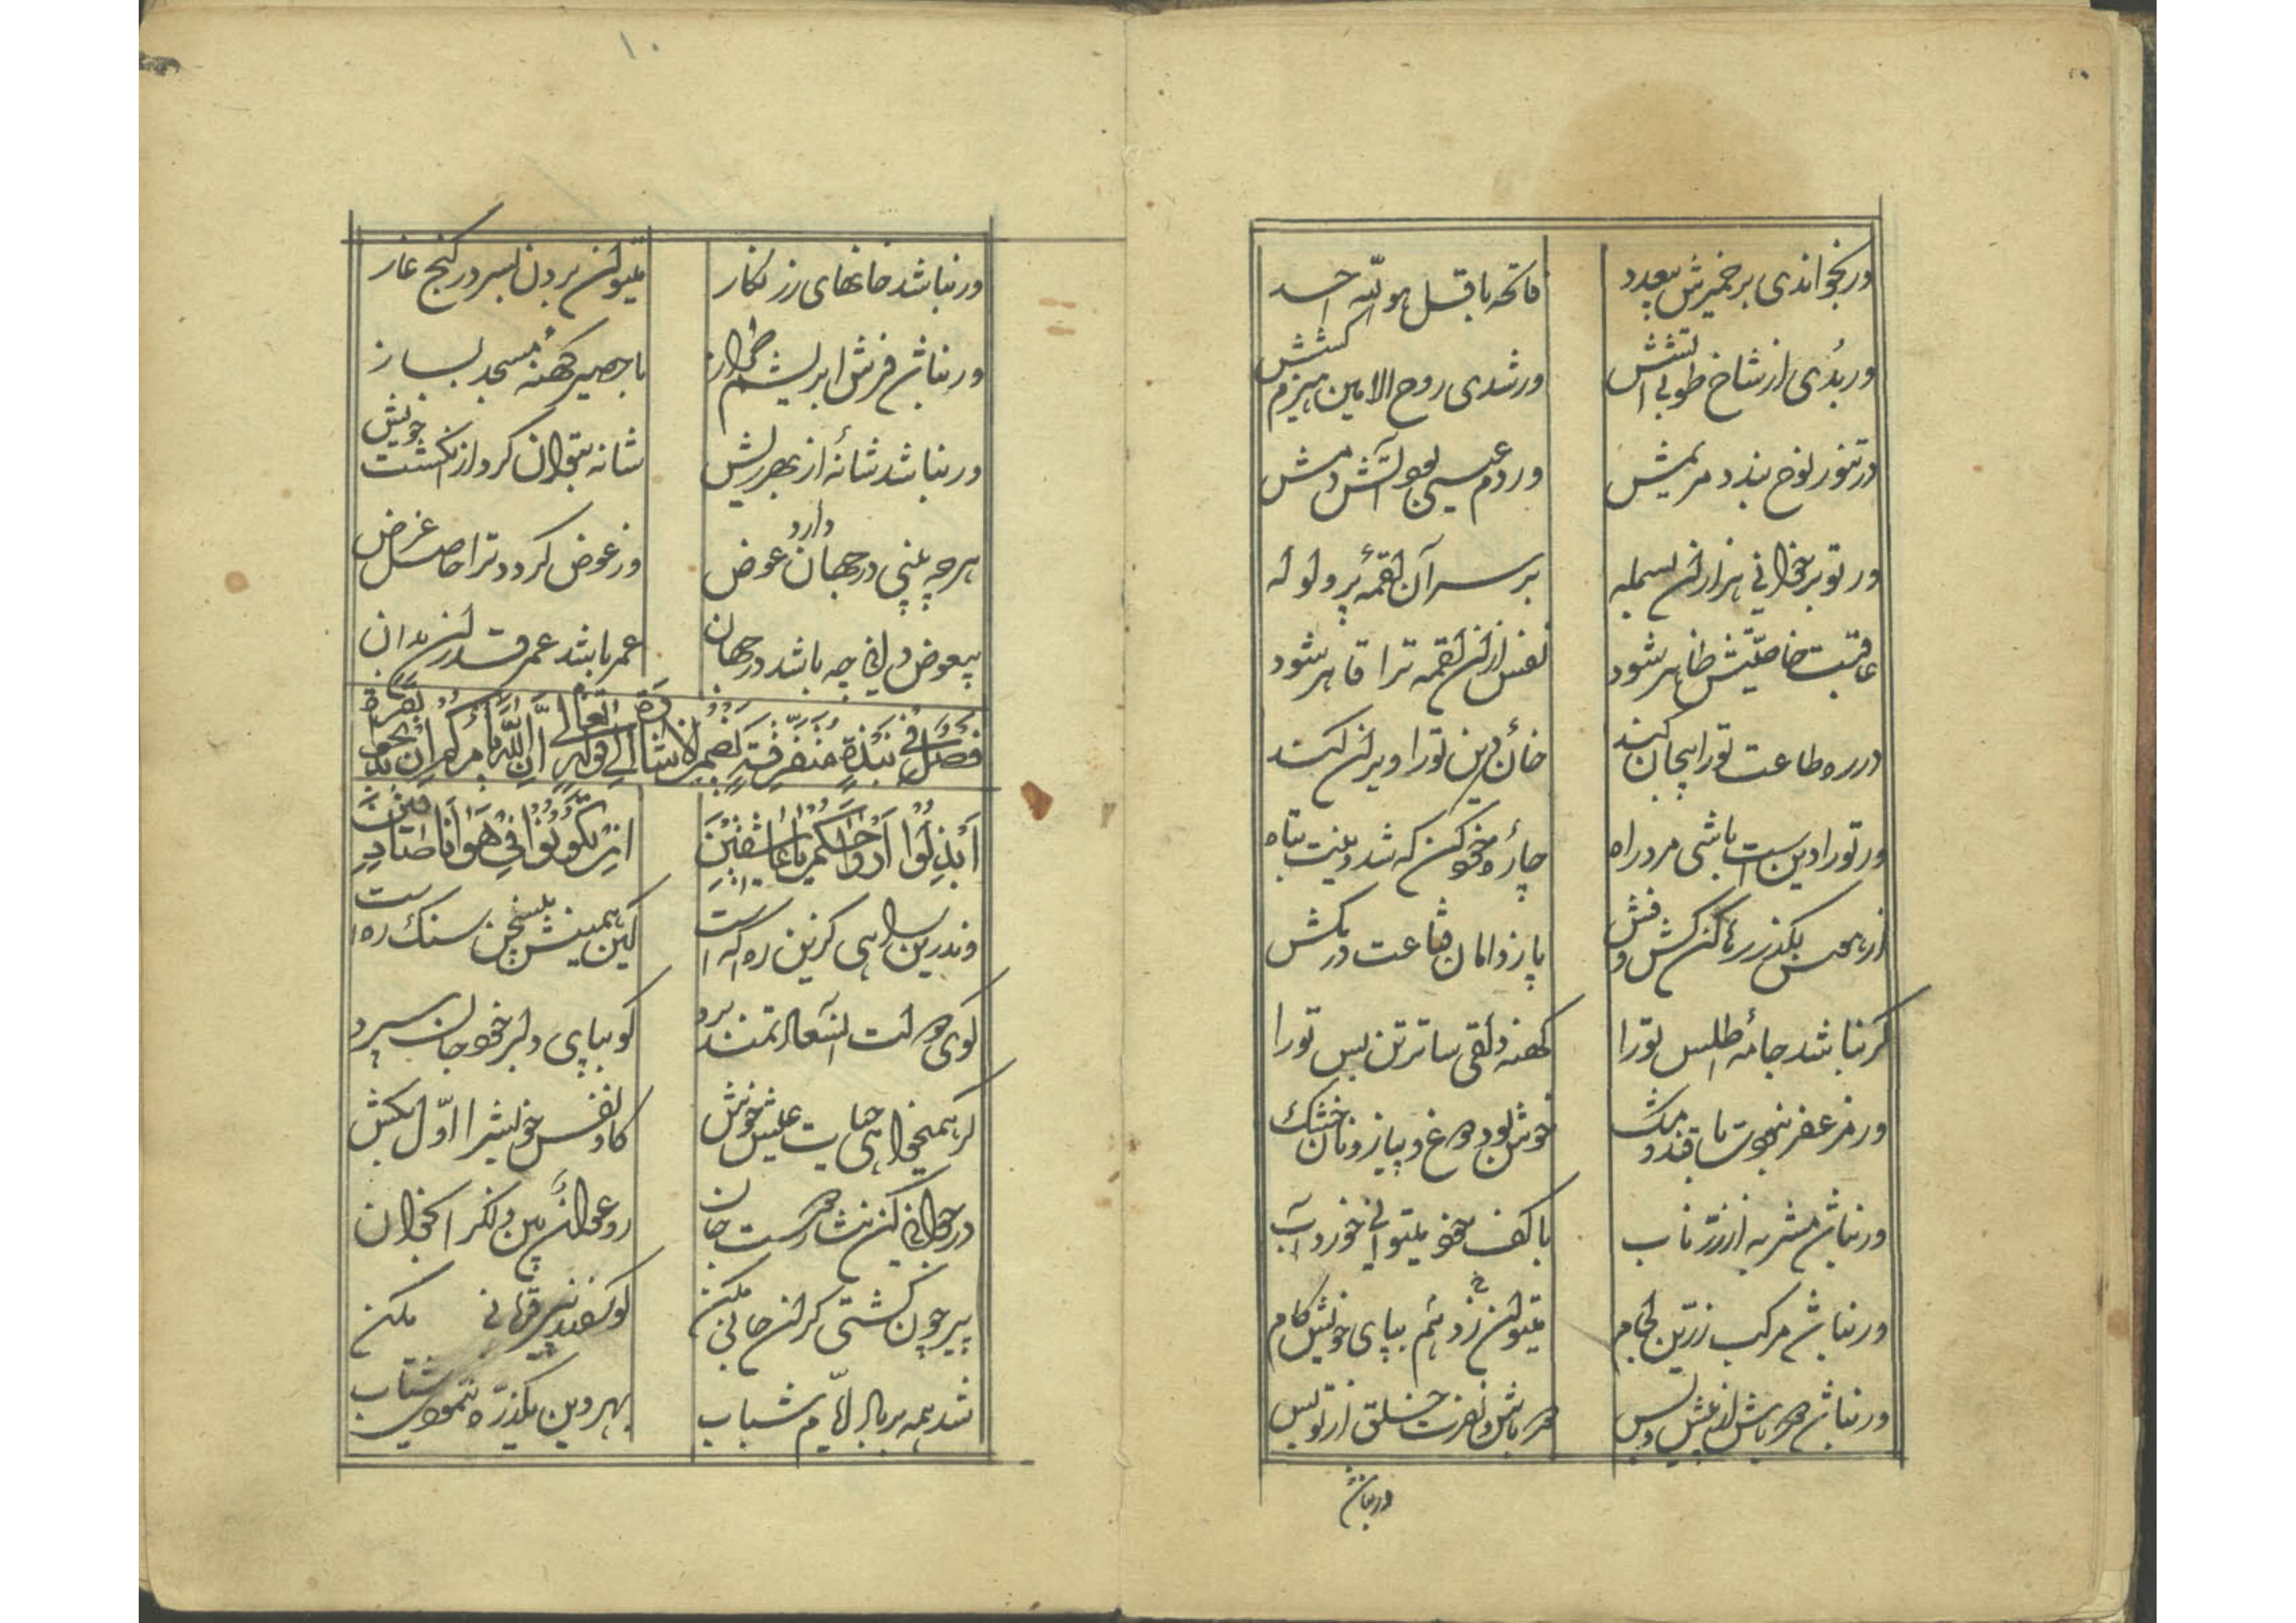 ور بخواندی بر خمیرش بیعدد	فاتحه با قل هو الله احد
ور بدی از شاخ طوبی آتشش	ور شدی روح الامین هیزم کشش
در تنور نوح بندد مریمش	ور دم عیسی بود آتش دمش
ور تو برخوانی هزاران بسمله	بر سر آن لقمهٔ پر ولوله
عاقبت خاصیتش ظاهر شود	نفس ازان لقمه ترا قاهر شود
در ره طاعت تو را بیجان کند	خانهٔ دین تو را ویران کند
ور تو را دین است باشی مرد راه	چارهٔ خود کن که شد دینت تباه
از هوس بگذر رها کن کش و فش	پا ز دامان قناعت در مکش
گر نباشد جامهٔ اطلس تو را	کهنه دلقی ساتر تن بس تو را
ور مزعفر نبودت با قند و مشک	خوش بود دوغ و پیاز و نان خشک
ور نباشد مشربه از زر ناب	با کف خود میتوانی خورد آب
ور نباشد مرکب زرین لجام	میتوان زد هم بپای خویش کام
ور نباشد دور باش از پیش و پس	دور باش نفرت خلق از تو بس
ور نباشد
۱۰
ور نباشد خانهای زر نکار	میتوان بردن بسر در کنج غار
ور نباشد فرش ابریشم طراز	با حصیر کهنهٔ مسجد بساز
ور نباشد شانهٔ از بهر ریش	شانه بتوان کرد از انکشت خویش
هر چه بینی در جهان دارد عوض	وز عوض کردد ترا حاصل غرض
بیعوض دانی چه باشد در جهان	عمر باشد عمر قدر آن بدان
فصل فی نبذة متفرقة تضمن الاشارة الی قوله تعالی ان الله یأمرکم ان تذبحوا بقرة
ابذلوا ارواحکم یا عاشقین	ان تکونوا فی هوانا صادقین
وندرین راهی کزین ره که است	کین همینش بیسخن سنک ره است
کوی دولت آن سعادتمند برد	کو بپای دلبر خود جان سپرد
کر همیخواهی حیات عیش خوش	کاو نفس خویش را اول بکش
در جوانی کن نثار دوست جان	رو عوان بین ذلک را بخوان
پیر چون کشتی کران جانی مکن	کوسفند پیر قربانی مکن
شد همه بر باد ایام شباب	بهر دین یکذره ننمودی شتاب